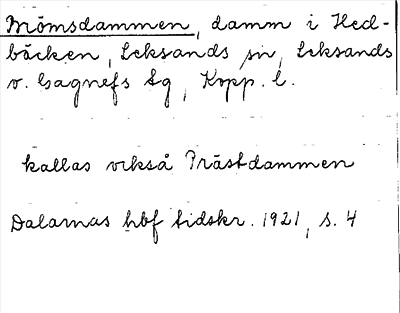 Mömsdammen, damm i Hed-
bäcken, Leksands sn, Leksands
o. Gagnefs tg, Kopp. l.
kallas också Prästdammen
Dalarnas hbf tidskr. 1921, s. 4